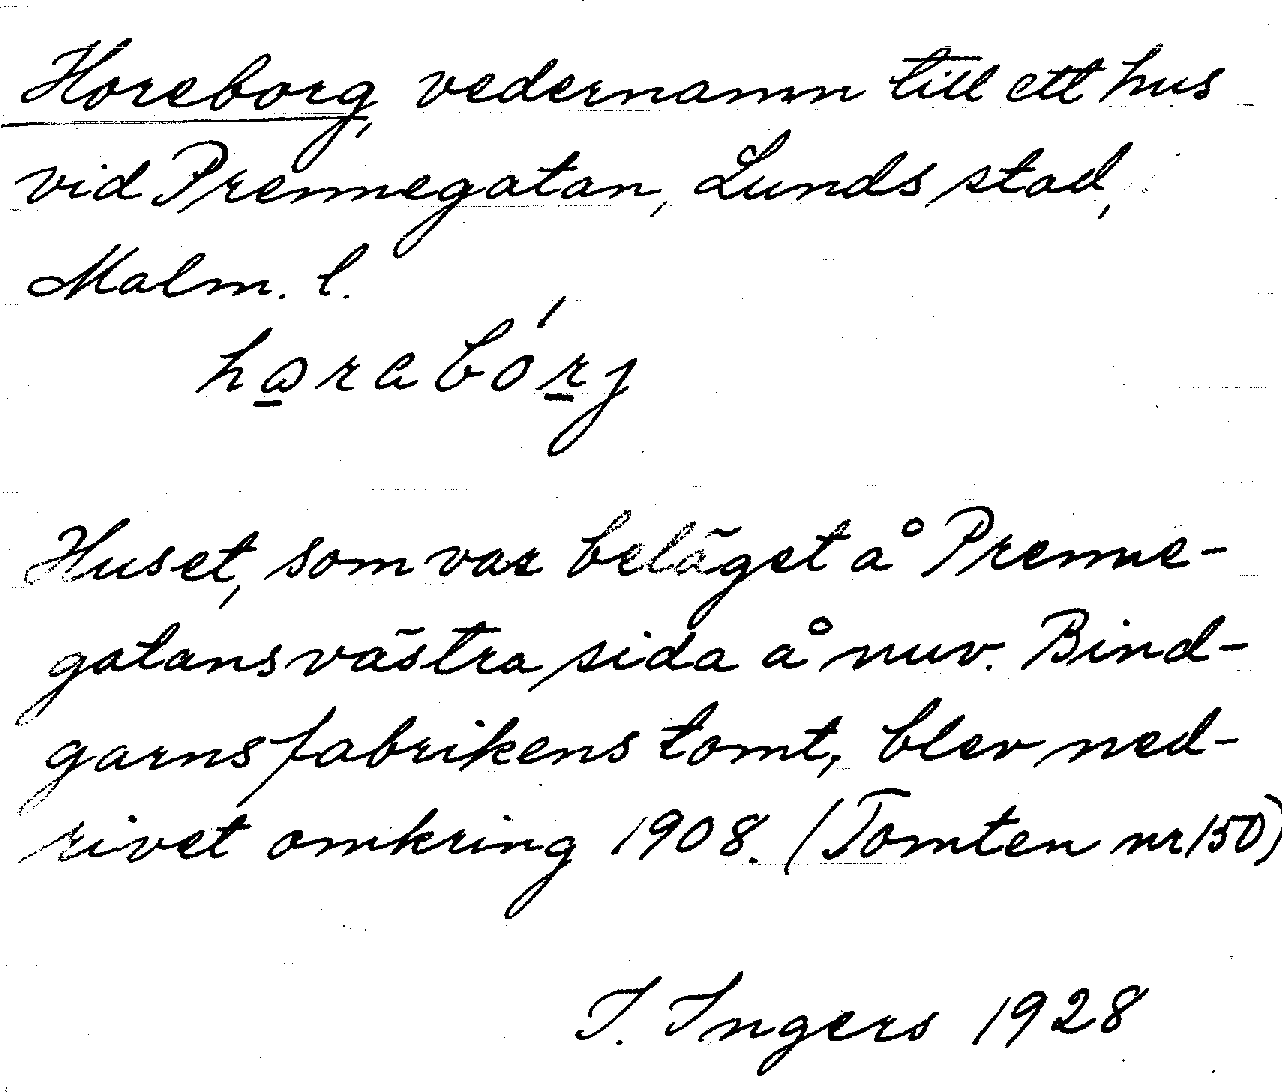 Horeborg, vedernamn till ett hus
vid Prennegatan, Lunds stad,
Malm. l.
harabórj
Huset, som var beläget å Prenne-
gatans västra sida å nuv. Bind-
garnsfabrikens tomt, blev ned-
rivet omkring 1908. (Tomten nr 150)
I. Ingers 1928